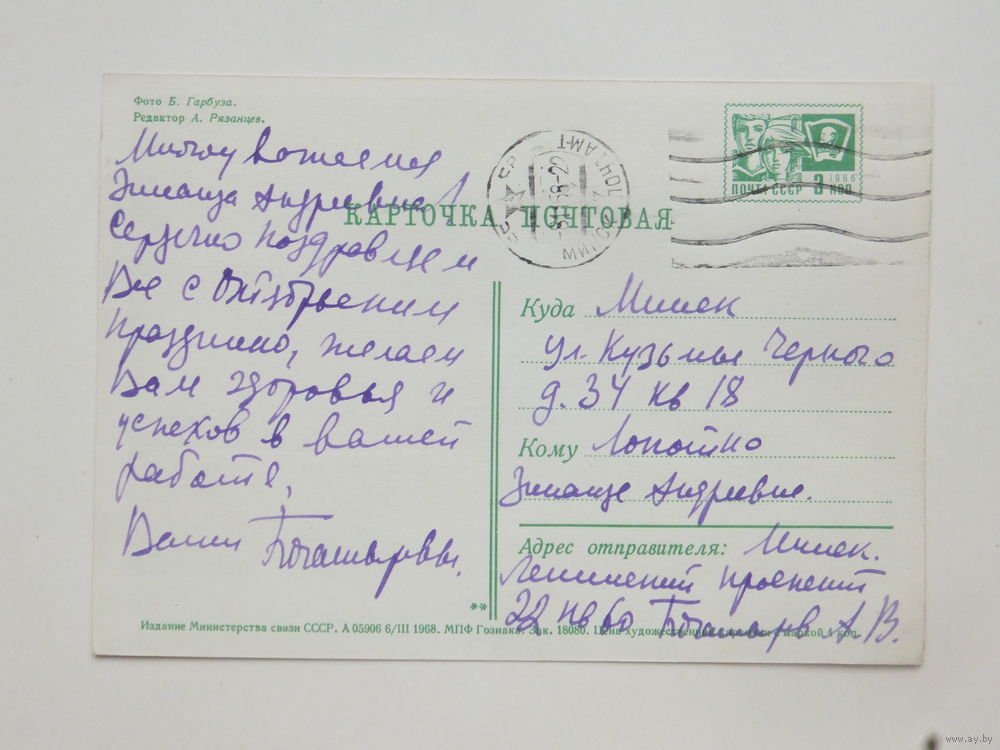 Фото Б. Гарбуза.
Редактор А. Рязанцев.
Зинаида Андреевна!
Сердечно поздравляем
Вас с Октябрьским
праздником, желаем
Вам здоровья и
успехов в вашей
работе,
Ваши
КАРТОЧКА ПОЧТОВАЯ
ПОЧТА СССР 3 КОП
1966
МИНСК ПОЧТАМТ
Куда Минск
ул. Кузьмы Черного
д. 34 кв 18
Кому Лопотко
Зинаиде Андреевне.
Адрес отправителя: Минск.
Ленинский проспект
22 кв 60 А В.
**
Издание Министерства связи СССР. А 05906 6/III 1968. МПФ Гознака. Зак. 18080. Цена художественной с маркой 4 коп.
www.ay.by